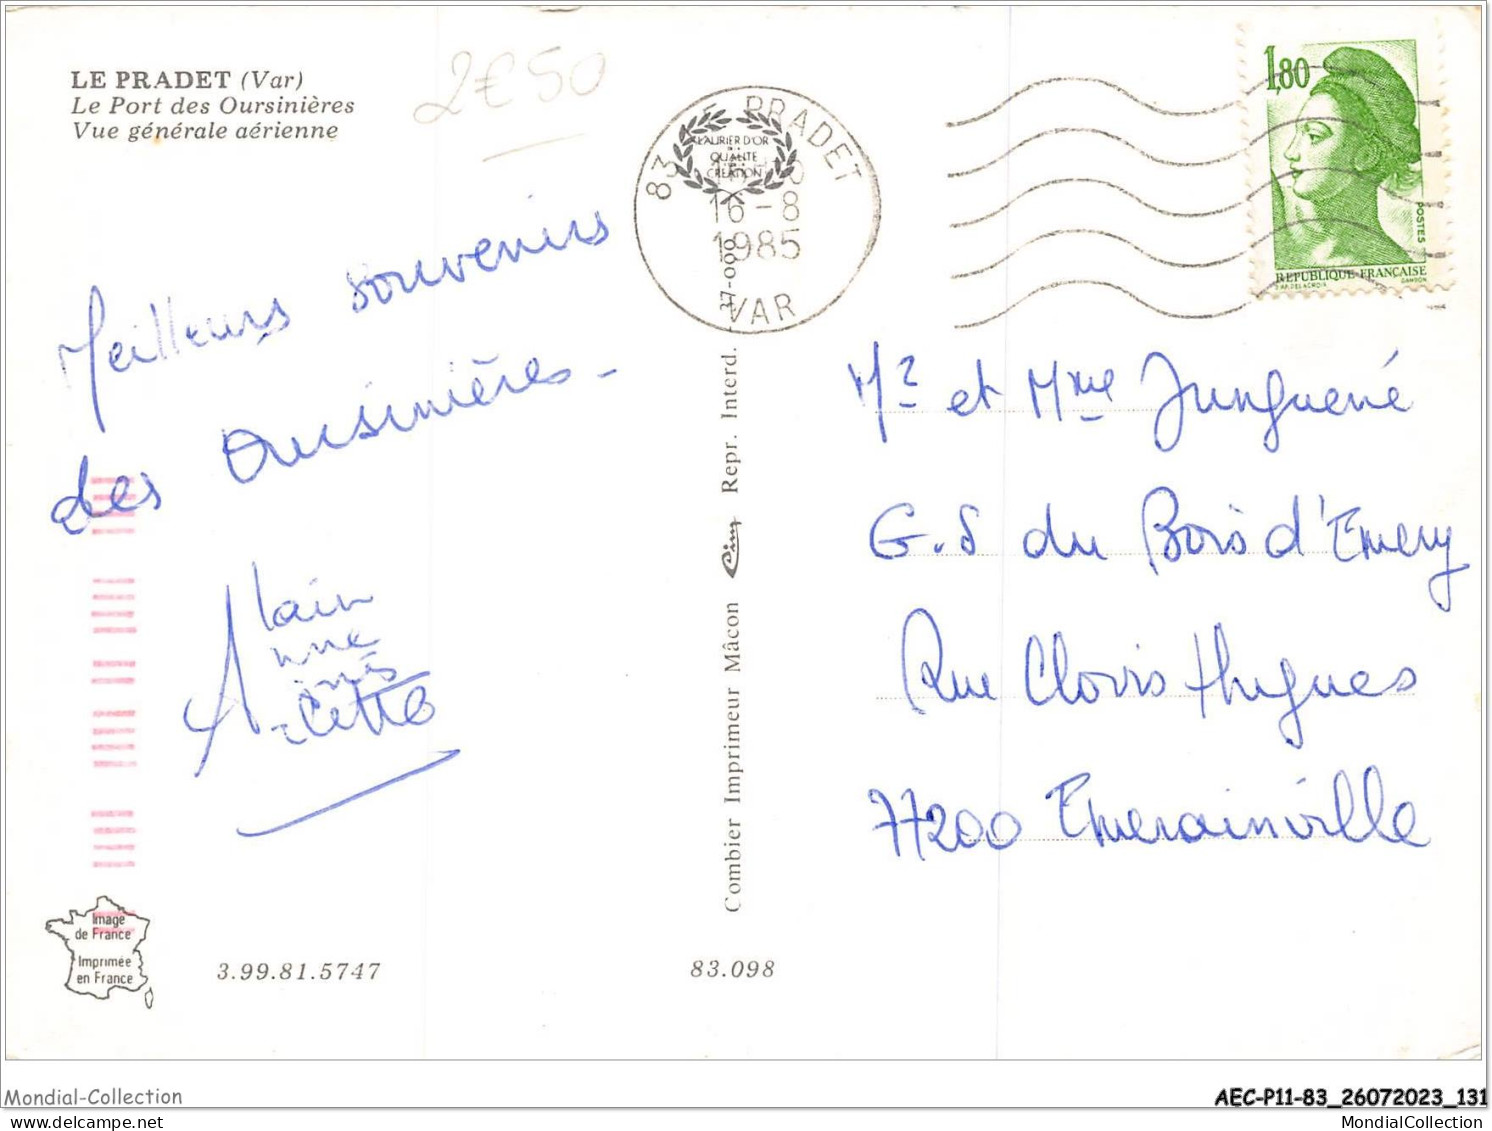 LE PRADET (Var)
Le Port des Oursinières
Vue générale aérienne
2€50
83 LE PRADET
LAURIER D'OR
QUALITE
CREATION
16-8
1985
VAR
1,80
POSTES
REPUBLIQUE FRANÇAISE
D'AP. DELACROIX GANDON
Meilleurs souvenirs
des Oursinières -
Alain
Anne
Anis
Arlette
Mr et Mme Junguené
G.S du Bois d'Emery
Rue Clovis Hugues
77200 Emerainville
Combier Imprimeur Mâcon Cim Repr. Interd.
Image
de France
Imprimée
en France
3.99.81.5747
83.098
Mondial-Collection
AEC-P11-83_26072023_131
MondialCollection